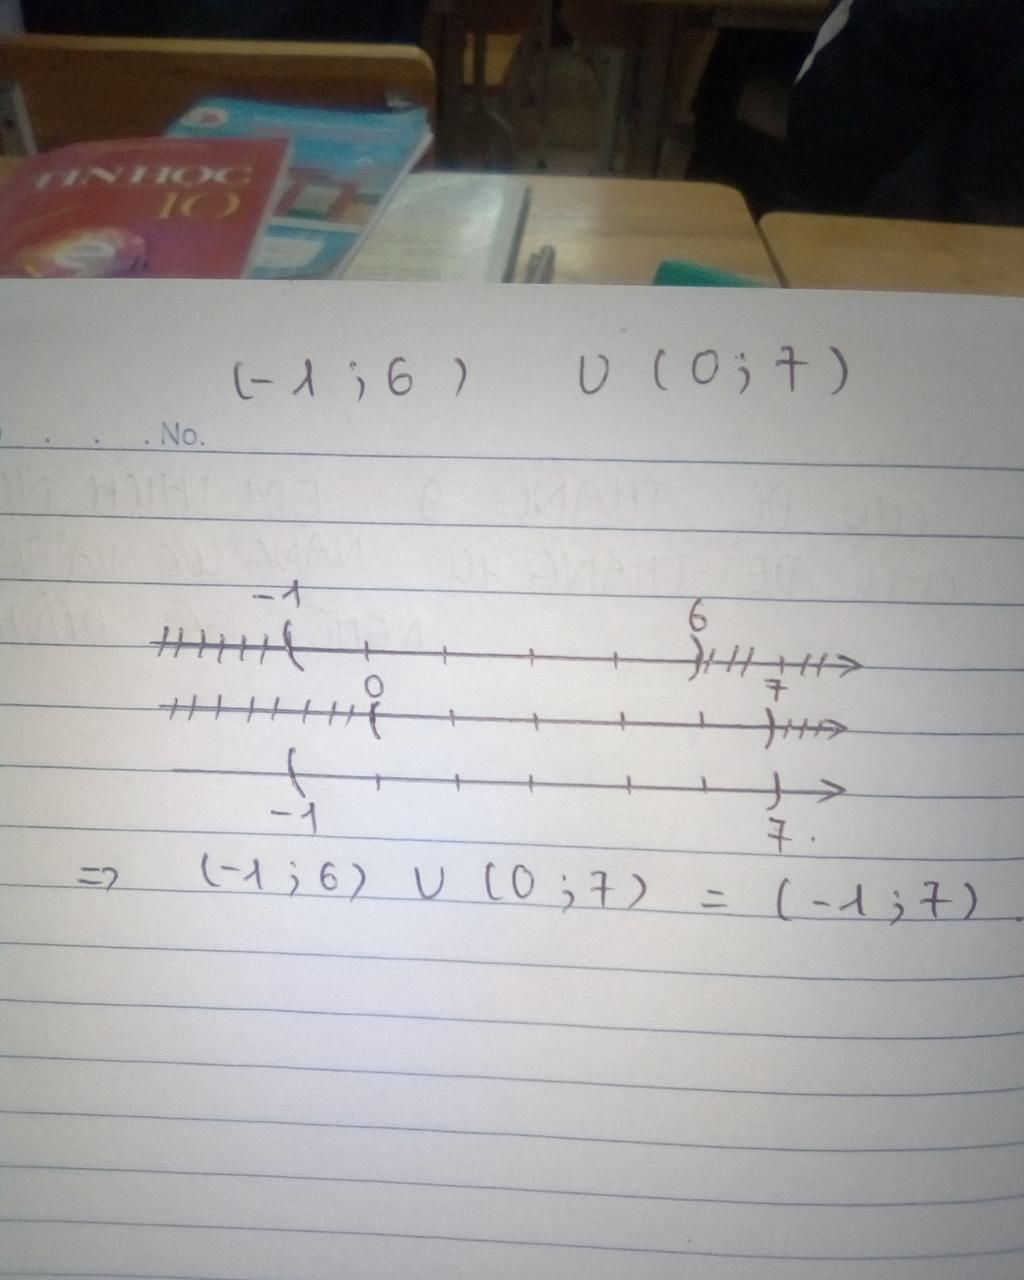 TIN HỌC
10
(-1 ; 6) ∪ (0 ; 7)
No.
-1 6
0 7
-1 7.
=> (-1 ; 6) ∪ (0 ; 7) = (-1 ; 7).